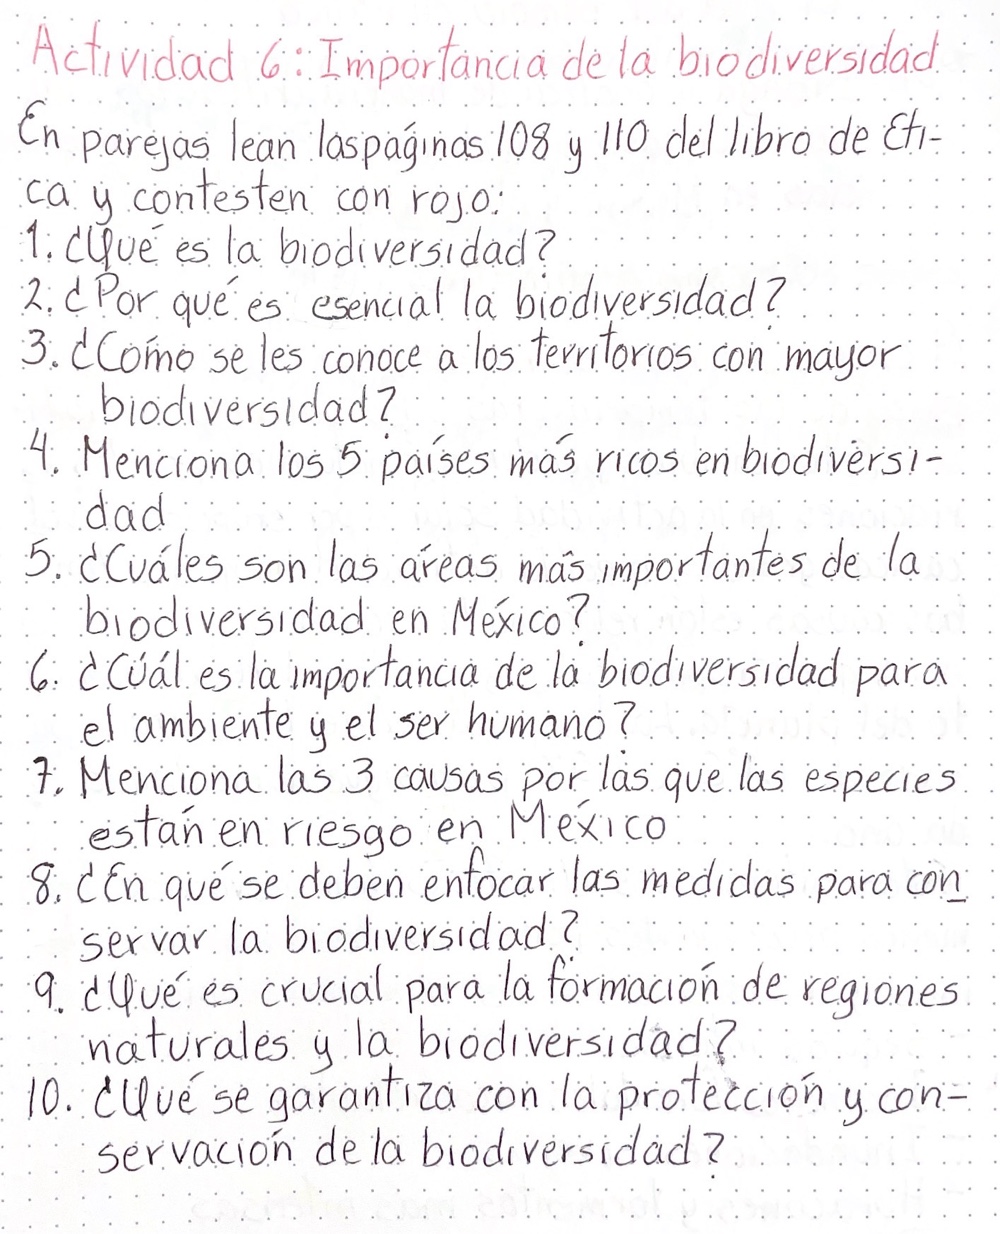 Actividad 6: Importancia de la biodiversidad
En parejas lean las páginas 108 y 110 del libro de Éti-
ca y contesten con rojo:
1. ¿Qué es la biodiversidad?
2. ¿Por qué es esencial la biodiversidad?
3. ¿Cómo se les conoce a los territorios con mayor
biodiversidad?
4. Menciona los 5 países más ricos en biodiversi-
dad
5. ¿Cuáles son las áreas más importantes de la
biodiversidad en México?
6. ¿Cuál es la importancia de la biodiversidad para
el ambiente y el ser humano?
7. Menciona las 3 causas por las que las especies
están en riesgo en México
8. ¿En qué se deben enfocar las medidas para con
servar la biodiversidad?
9. ¿Qué es crucial para la formación de regiones
naturales y la biodiversidad?
10. ¿Qué se garantiza con la protección y con-
servación de la biodiversidad?